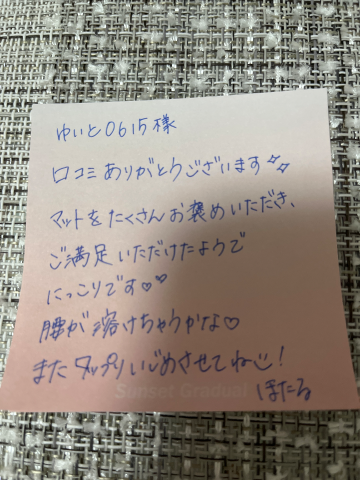 ゆいと0615様
口コミありがとうございます✨
マットをたくさんお褒めいただき、
ご満足いただけたようで
にっこりです♡♡
腰が溶けちゃうかな♡
またタップリいじめさせてね!
ほたる
Sunset Gradual